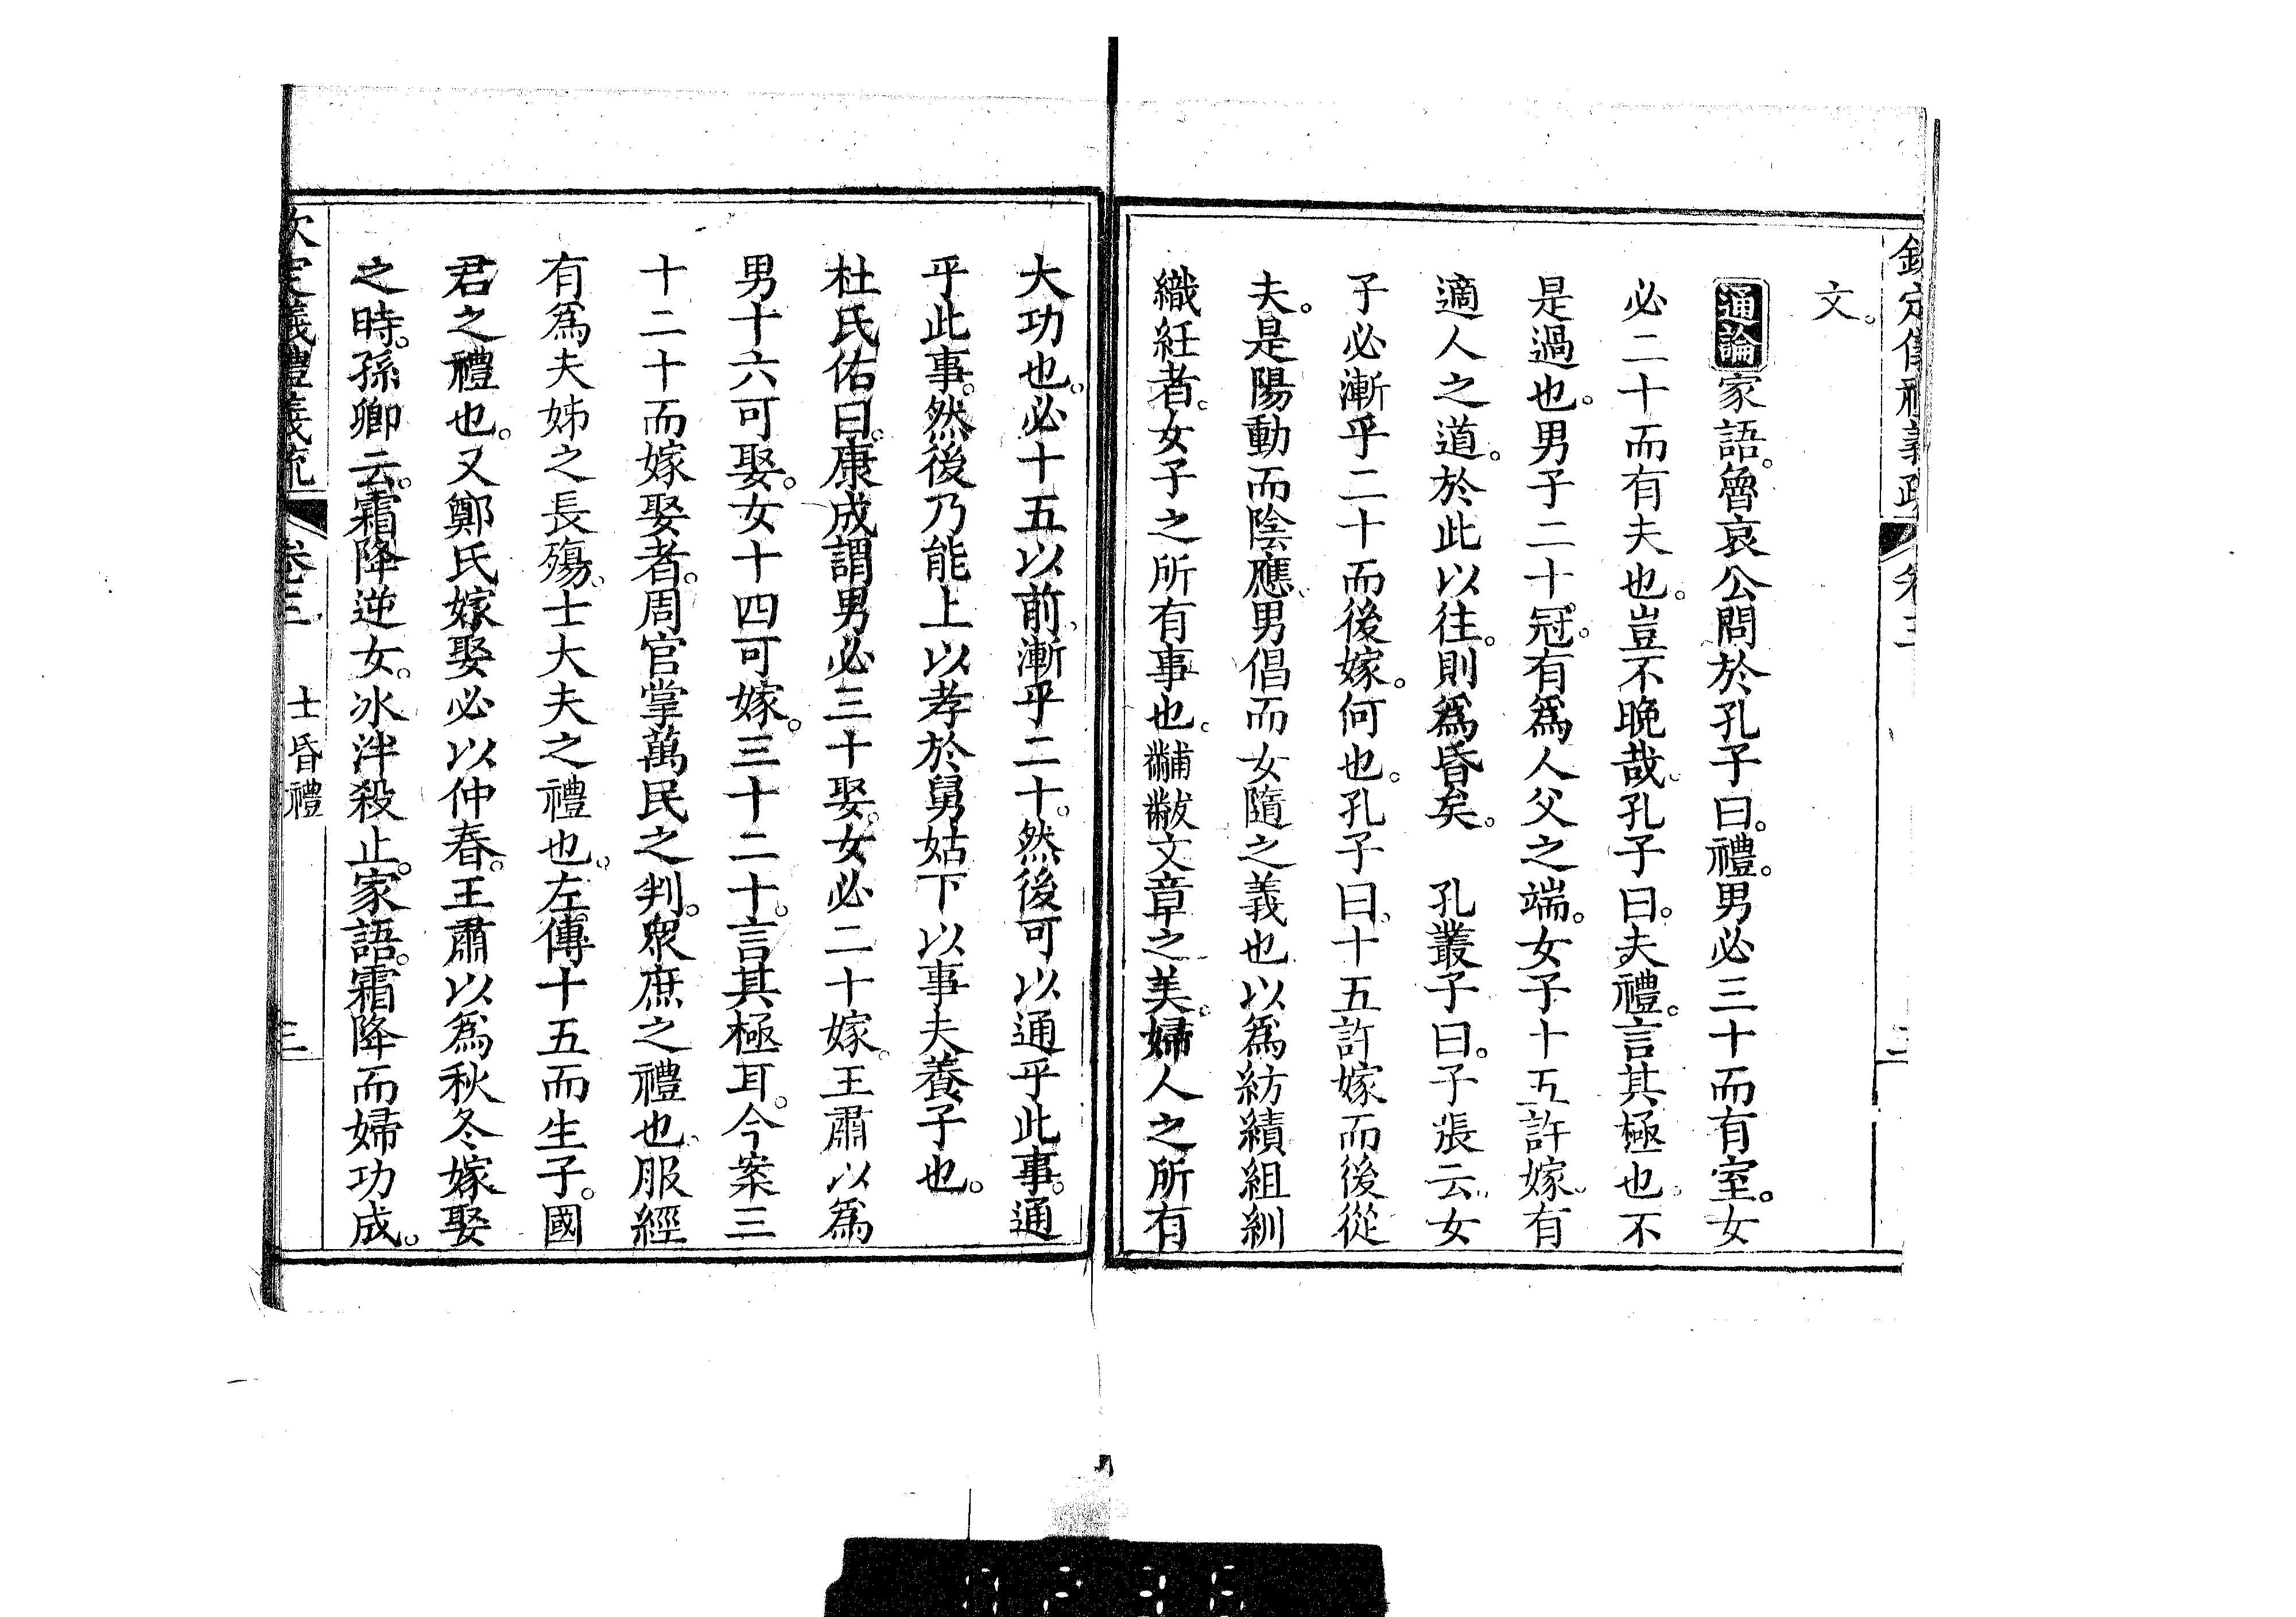 文。
通論家語。魯哀公問於孔子曰。禮。男必三十而有室。女
必二十而有夫也。豈不晚哉。孔子曰。夫禮。言其極也。不
是過也。男子二十。冠。有爲人父之端。女子十五許嫁。有
適人之道。於此以往。則爲昏矣。 孔叢子曰。子張云。女
子必漸乎二十而後嫁。何也。孔子曰。十五許嫁而後從
夫。是陽動而陰應。男倡而女隨之義也以爲紡績組紃
織紝者。女子之所有事也。黼黻文章之美。婦人之所有
大功也。必十五以前。漸乎二十。然後可以通乎此事。通
乎此事。然後乃能上以孝於舅姑下以事夫養子也。
杜氏佑曰。康成謂男必三十娶。女必二十嫁。王肅以爲
男十六可娶。女十四可嫁。三十二十。言其極耳。今案三
十二十而嫁娶者。周官掌萬民之判。衆庶之禮也。服經
有爲夫姊之長殤。士大夫之禮也。左傳十五而生子。國
君之禮也。又鄭氏嫁娶必以仲春。王肅以爲秋冬嫁娶
之時。孫卿云。霜降逆女。冰泮殺止。家語。霜降而婦功成。
欽定儀禮義疏 卷三 士昏禮 三